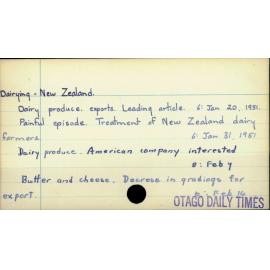 Dairying - New Zealand.
Dairy produce exports. Leading article. 6: Jan 20, 1951.
Painful episode. Treatment of New Zealand dairy
farmers. 6: Jan 31, 1951
Dairy produce. American company interested
8: Feb 7
Butter and cheese. Decrease in gradings for
export. Feb 16
OTAGO DAILY TIMES